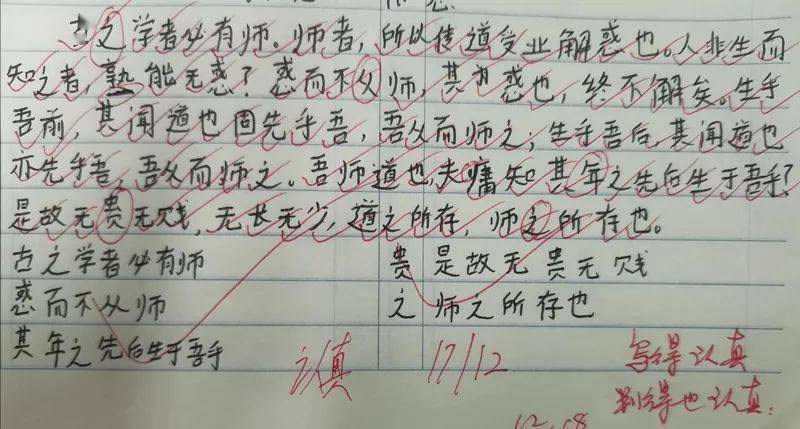 古之学者必有师。师者，所以传道受业解惑也。人非生而
知之者，熟能无惑？惑而不从师，其为惑也，终不解矣。生乎
吾前，其闻道也固先乎吾，吾从而师之；生乎吾后，其闻道也
亦先乎吾，吾从而师之。吾师道也，夫庸知其年之先后生于吾乎？
是故无贵无贱，无长无少，道之所存，师之所存也。
古之学者必有师
贵 是故无贵无贱
惑而不从师
之 师之所存也
其年之先后生于吾乎
认真
17/12
写得认真
判得也认真